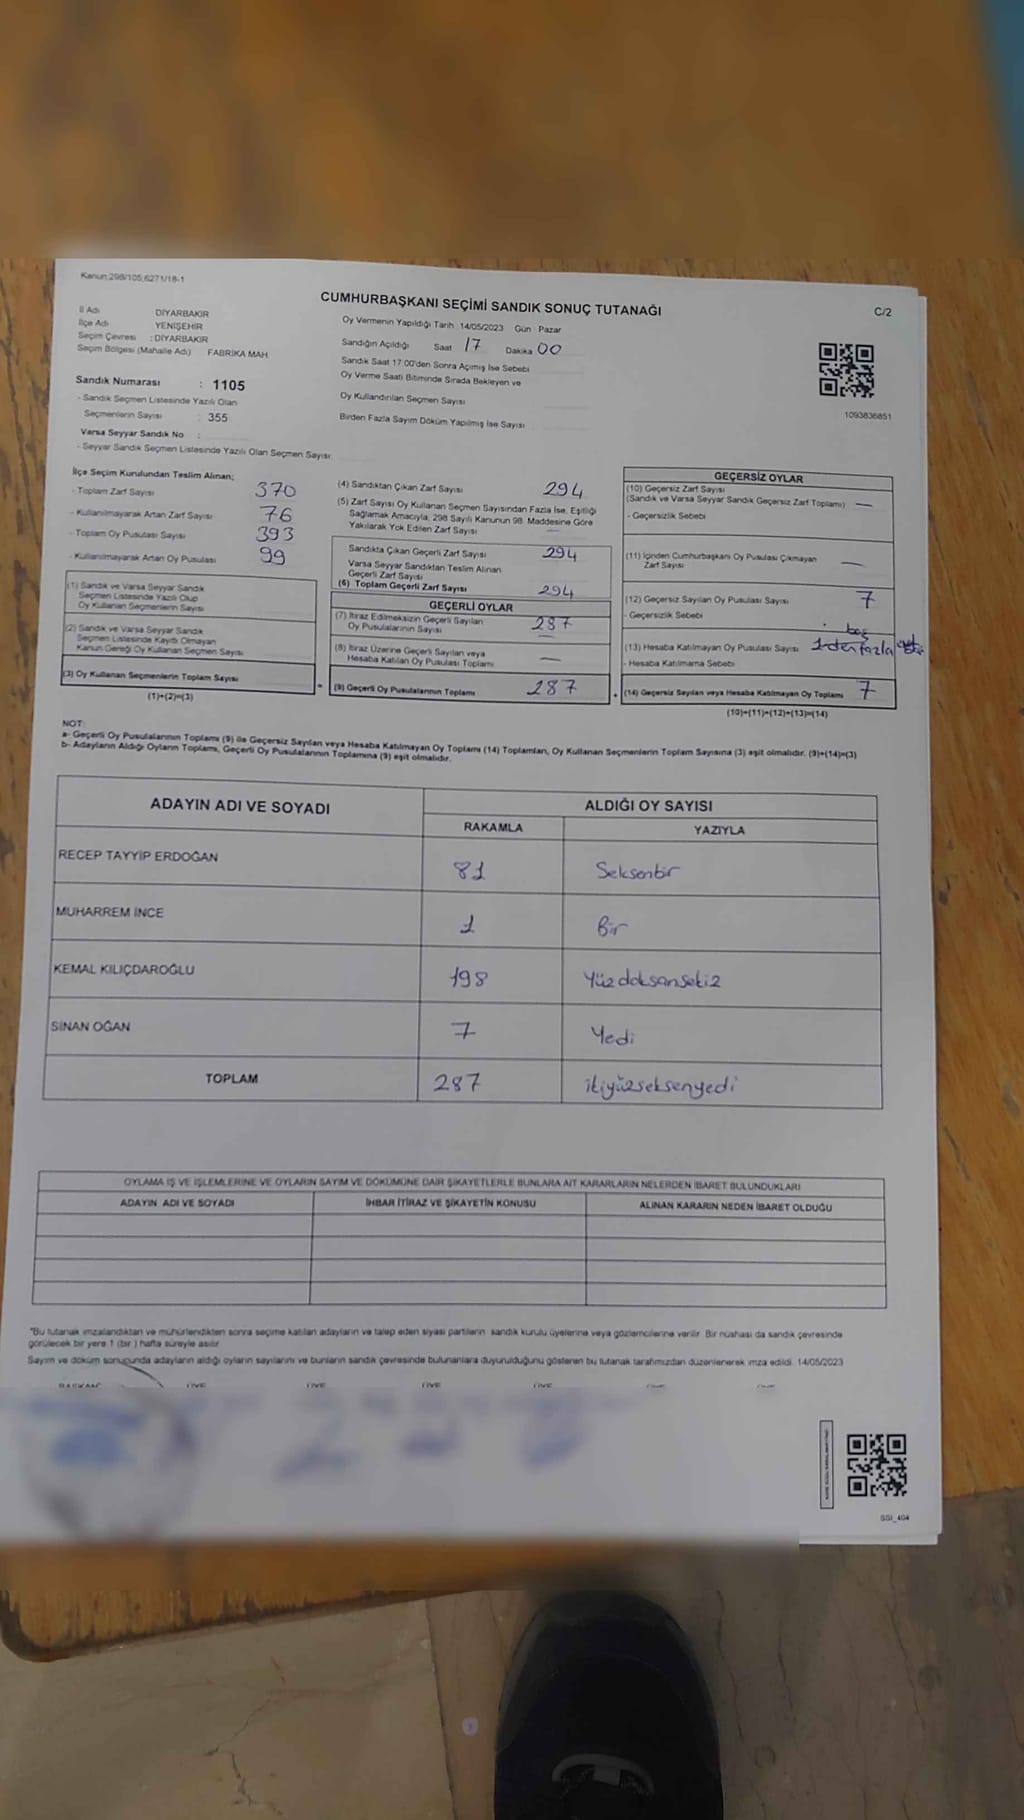 Kanun:298/105;6271/18-1
CUMHURBAŞKANI SEÇİMİ SANDIK SONUÇ TUTANAĞI
C/2
İl Adı DİYARBAKIR
İlçe Adı YENİŞEHİR
Seçim Çevresi : DİYARBAKIR
Seçim Bölgesi (Mahalle Adı) FABRIKA MAH
Sandık Numarası : 1105
- Sandık Seçmen Listesinde Yazılı Olan
Seçmenlerin Sayısı : 355
Varsa Seyyar Sandık No :
- Seyyar Sandık Seçmen Listesinde Yazılı Olan Seçmen Sayısı:
Oy Vermenin Yapıldığı Tarih 14/05/2023 Gün Pazar
Sandığın Açıldığı Saat 17 Dakika 00
Sandık Saat 17:00'den Sonra Açımış İse Sebebi
Oy Verme Saati Bitiminde Sırada Bekleyen ve
Oy Kullandırılan Seçmen Sayısı
Birden Fazla Sayım Döküm Yapılmış İse Sayısı
1093836851
İlçe Seçim Kurulundan Teslim Alınan;
- Toplam Zarf Sayısı 370
- Kullanılmayarak Artan Zarf Sayısı 76
- Toplam Oy Pusulası Sayısı 393
- Kullanılmayarak Artan Oy Pusulası 99
(1) Sandık ve Varsa Seyyar Sandık
Seçmen Listesinde Yazılı Olup
Oy Kullanan Seçmenlerin Sayısı
(2) Sandık ve Varsa Seyyar Sandık
Seçmen Listesinde Kayıtlı Olmayan
Kanun Gereği Oy Kullanan Seçmen Sayısı
(3) Oy Kullanan Seçmenlerin Toplam Sayısı
(1)+(2)=(3)
(4) Sandıktan Çıkan Zarf Sayısı 294
(5) Zarf Sayısı Oy Kullanan Seçmen Sayısından Fazla İse, Eşitliği
Sağlamak Amacıyla, 298 Sayılı Kanunun 98. Maddesine Göre
Yakılarak Yok Edilen Zarf Sayısı —
Sandıkta Çıkan Geçerli Zarf Sayısı 294
Varsa Seyyar Sandıktan Teslim Alınan
Geçerli Zarf Sayısı
(6) Toplam Geçerli Zarf Sayısı 294
GEÇERLİ OYLAR
(7) İtiraz Edilmeksizin Geçerli Sayılan
Oy Pusulalarının Sayısı 287
(8) İtiraz Üzerine Geçerli Sayılan veya
Hesaba Katılan Oy Pusulası Toplamı —
(9) Geçerli Oy Pusulalarının Toplamı 287
GEÇERSİZ OYLAR
(10) Geçersiz Zarf Sayısı
(Sandık ve Varsa Seyyar Sandık Geçersiz Zarf Toplamı) —
- Geçersizlik Sebebi
(11) İçinden Cumhurbaşkanı Oy Pusulası Çıkmayan
Zarf Sayısı —
(12) Geçersiz Sayılan Oy Pusulası Sayısı 7
- Geçersizlik Sebebi
boş
(13) Hesaba Katılmayan Oy Pusulası Sayısı 1den fazla
- Hesaba Katılmama Sebebi
(14) Geçersiz Sayılan veya Hesaba Katılmayan Oy Toplamı 7
(10)+(11)+(12)+(13)=(14)
NOT:
a- Geçerli Oy Pusulalarının Toplamı (9) ile Geçersiz Sayılan veya Hesaba Katılmayan Oy Toplamı (14) Toplamları, Oy Kullanan Seçmenlerin Toplam Sayısına (3) eşit olmalıdır. (9)+(14)=(3)
b- Adayların Aldığı Oyların Toplamı, Geçerli Oy Pusulalarının Toplamına (9) eşit olmalıdır.
ADAYIN ADI VE SOYADI ALDIĞI OY SAYISI
RAKAMLA YAZIYLA
RECEP TAYYİP ERDOĞAN 81 Seksenbir
MUHARREM İNCE 1 Bir
KEMAL KILIÇDAROĞLU 198 Yüzdoksansekiz
SİNAN OĞAN 7 Yedi
TOPLAM 287 ikiyüzseksenyedi
OYLAMA İŞ VE İŞLEMLERİNE VE OYLARIN SAYIM VE DÖKÜMÜNE DAİR ŞİKAYETLERLE BUNLARA AİT KARARLARIN NELERDEN İBARET BULUNDUKLARI
ADAYIN ADI VE SOYADI İHBAR İTİRAZ VE ŞİKAYETİN KONUSU ALINAN KARARIN NEDEN İBARET OLDUĞU
"Bu tutanak imzalandıktan ve mühürlendikten sonra seçime katılan adayların ve talep eden siyasi partilerin sandık kurulu üyelerine veya gözlemcilerine verilir. Bir nüshası da sandık çevresinde
görülecek bir yere 1 (bir ) hafta süreyle asılır
Sayım ve döküm sonucunda adayların aldığı oyların sayılarını ve bunların sandık çevresinde bulunanlara duyurulduğunu gösteren bu tutanak tarafımızdan düzenlenerek imza edildi. 14/05/2023
BAŞKAN ÜYE ÜYE ÜYE ÜYE ÜYE ÜYE
SSI_404